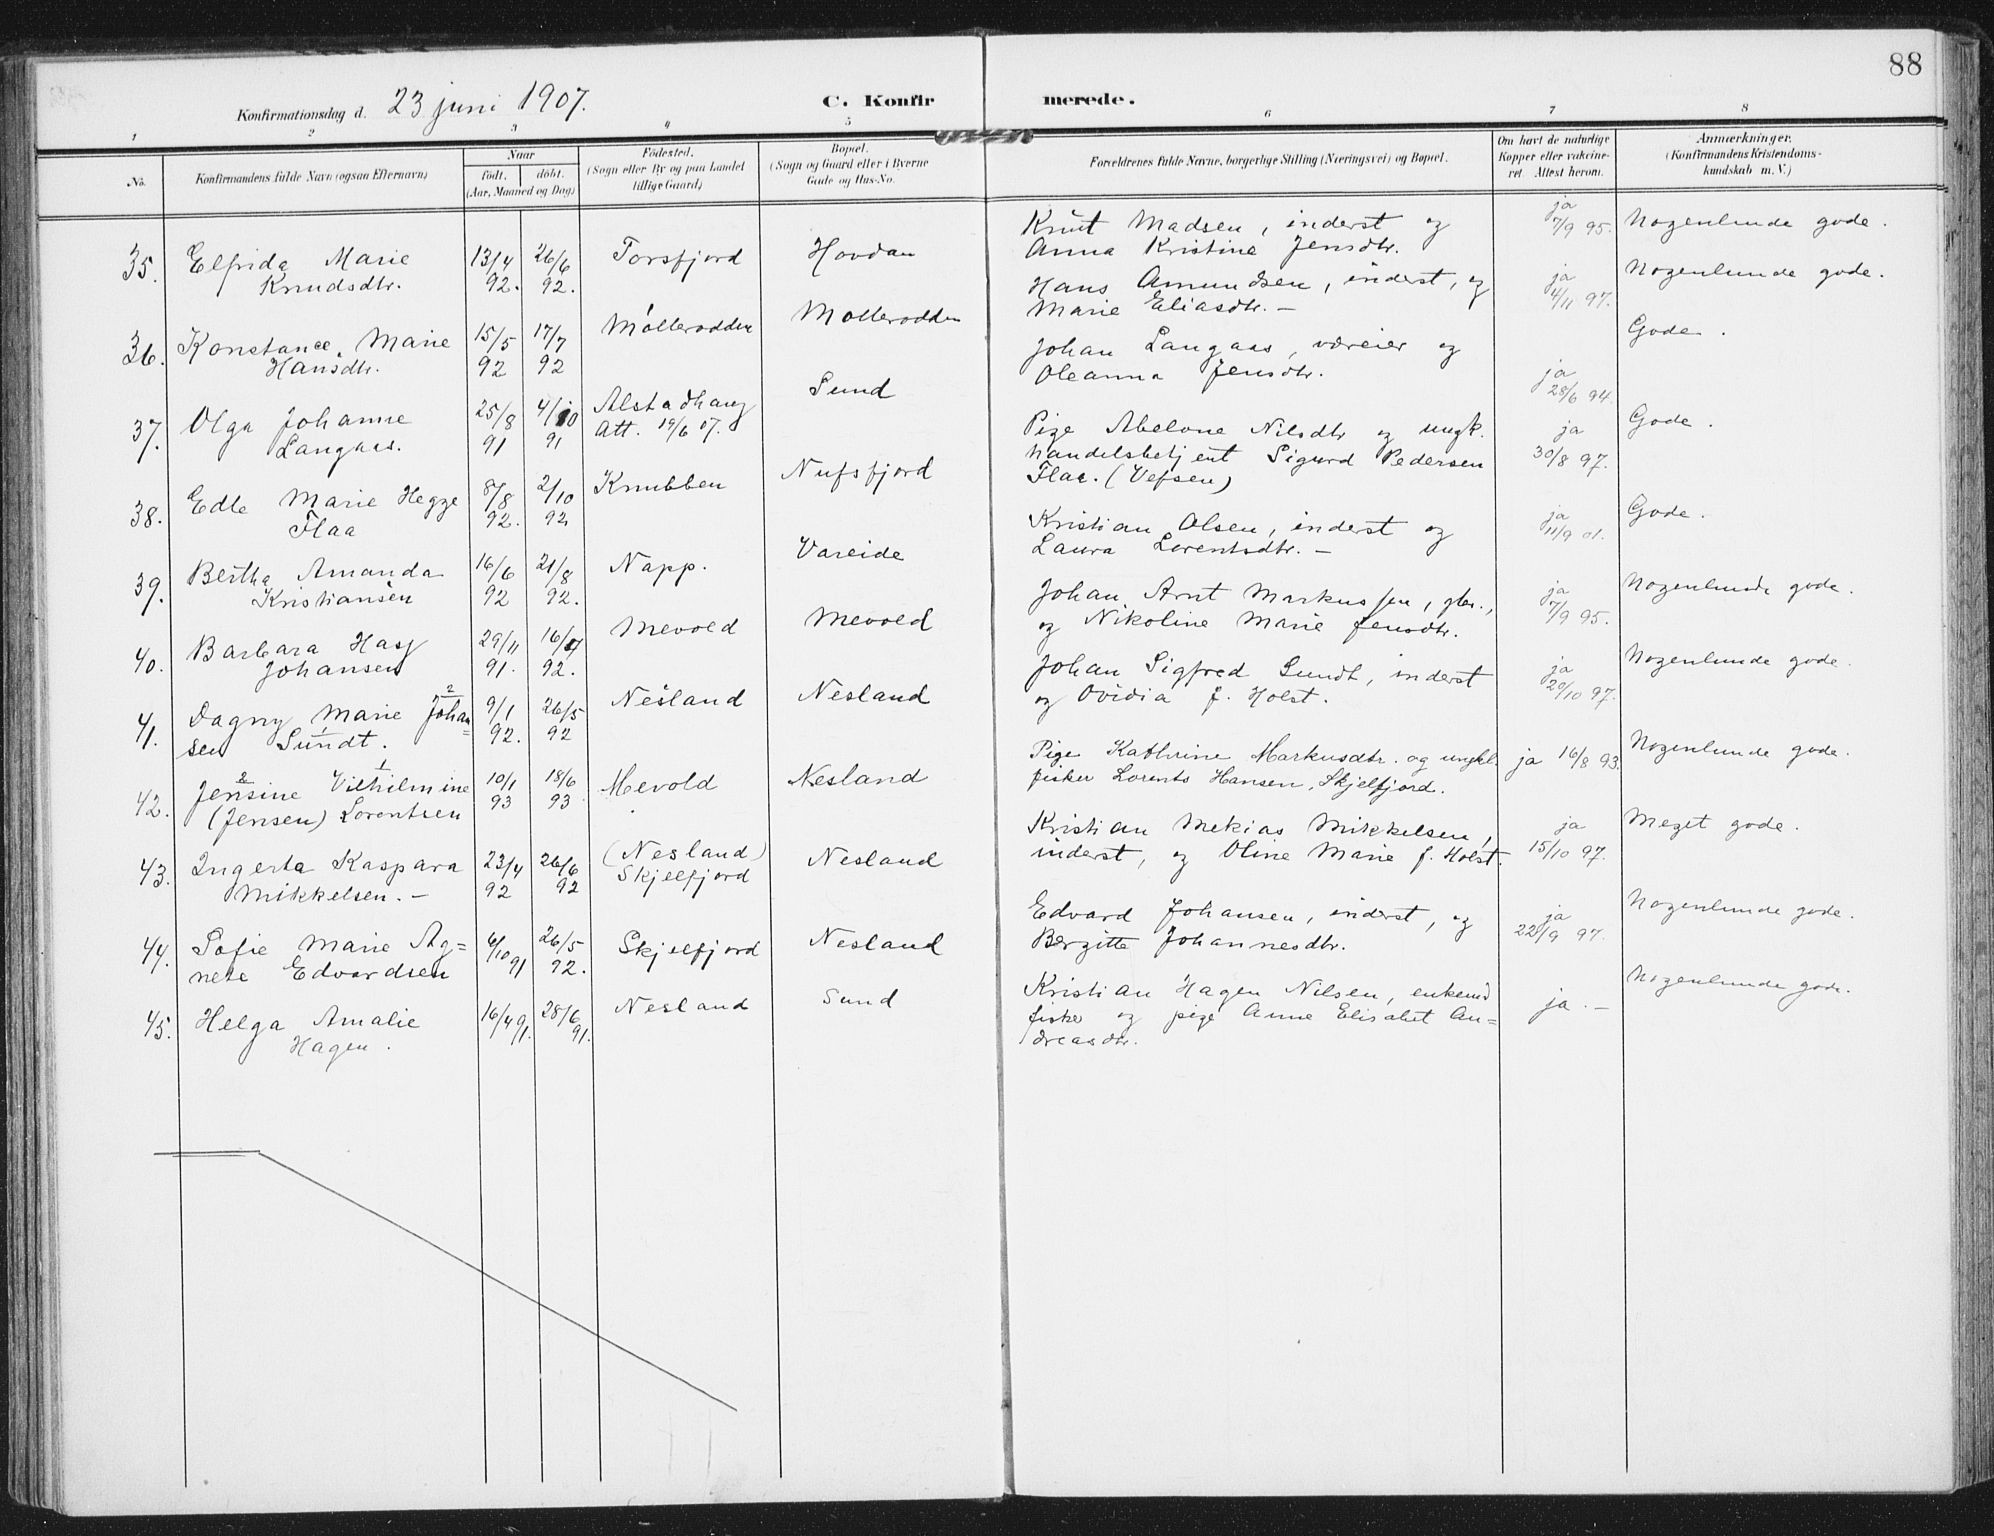 88
Konfirmationsdag d. 23 juni 1907.
C. Konfir merede.
1 2 3 4 5 6 7 8
No. Konfirmandens fulde Navn (ogsaa Efternavn) Naar födt. döbt. (Aar, Maaned og Dag)
Födested. (Sogn eller By og paa Landet tillige Gaard)
Bopæl. (Sogn og Gaard eller i Byerne Gade og Hus-No.
Forældrenes fulde Navne, borgerlige Stilling (Næringsvei) og Bopæl.
Om havt de naturlige Kopper eller vakcineret. Attest herom.
Anmærkninger. (Konfirmandens Kristendomskundskab m. V.)
35. Elfrida Marie 13/4 26/6 Torsfjord Hovdan Knut Madsen, inderst og ja 7/9 95. Nogenlunde gode.
Knudsdtr. 92. 92. Anna Kristine Jensdtr.
36. Konstance Marie 15/5 17/7 Mölleradden Molleradden Hans Amundsen, inderst, og ja 4/11 97. Nogenlunde gode.
Hansdtr. 92 92 Marie Eliasdtr. —
37. Olga Johanne 25/8 4/10 Alstadhaug Sund Johan Langaas, væreier og ja 28/6 94. Gode.
Langaas. 91 91 Att. 19/6 07. Oleanna Jensdtr.
38. Edle Marie Hegge 8/8 2/10 Knubben Nufsfjord Pige Abelone Nilsdtr og ungk. ja 30/8 97. Gode.
Flaa 92. 92 handelsbetjent Sigurd Pedersen
Flaa. (Vefsen)
39. Bertha Amanda 16/6 21/8 Napp. Vareide Kristian Olsen, inderst og ja 11/9 01. Gode.
Kristiansen 92 92. Laura Lorentsdtr. —
40. Barbara Hag 29/11 16/7 Mevold Mevold Johan Arnt Markussen, gbr., ja 7/9 95. Nogenlunde gode.
Johansen 91. 92. og Nikoline Marie Jensdtr.
41. Dagny Marie Johan= 9/1 26/5 Nesland Nesland Johan Sigfred Sundt, inderst ja 29/10 97. Nogenlunde gode.
sen Sundt. 92. 92 og Ovidia f. Holst.
42. Jensine Vilhilmine 10/1 18/6 Mevold Nesland Pige Kathrine Markusdtr. og ungkl. ja 16/8 93. Nogenlunde gode.
(Jensen) Lorentsen 93 93 fisker Lorents Hansen, Skjelfjord.
43. Ingerta Kaspara 23/4 26/6 (Nesland) Nesland Kristian Mekias Mikkelsen, ja 15/10 97. Meget gode.
Mikkelsen. — 92 92 Skjelfjord inderst, og Oline Marie f. Holst.
44. Sofie Marie Ag= 6/10 91 26/5 Skjelfjord Nesland Edvard Johansen, inderst, og ja 22/9 97. Nogenlunde gode.
nete Edvardsen 92. Bergitte Johannesdtr.
45. Helga Amalie 16/4 91. 28/6 91. Nesland Sund Kristian Hagen Nilsen, enkemd ja. — Nogenlunde gode.
Hagen. fisker og pige Anne Elisabet An=
dreasdtr.